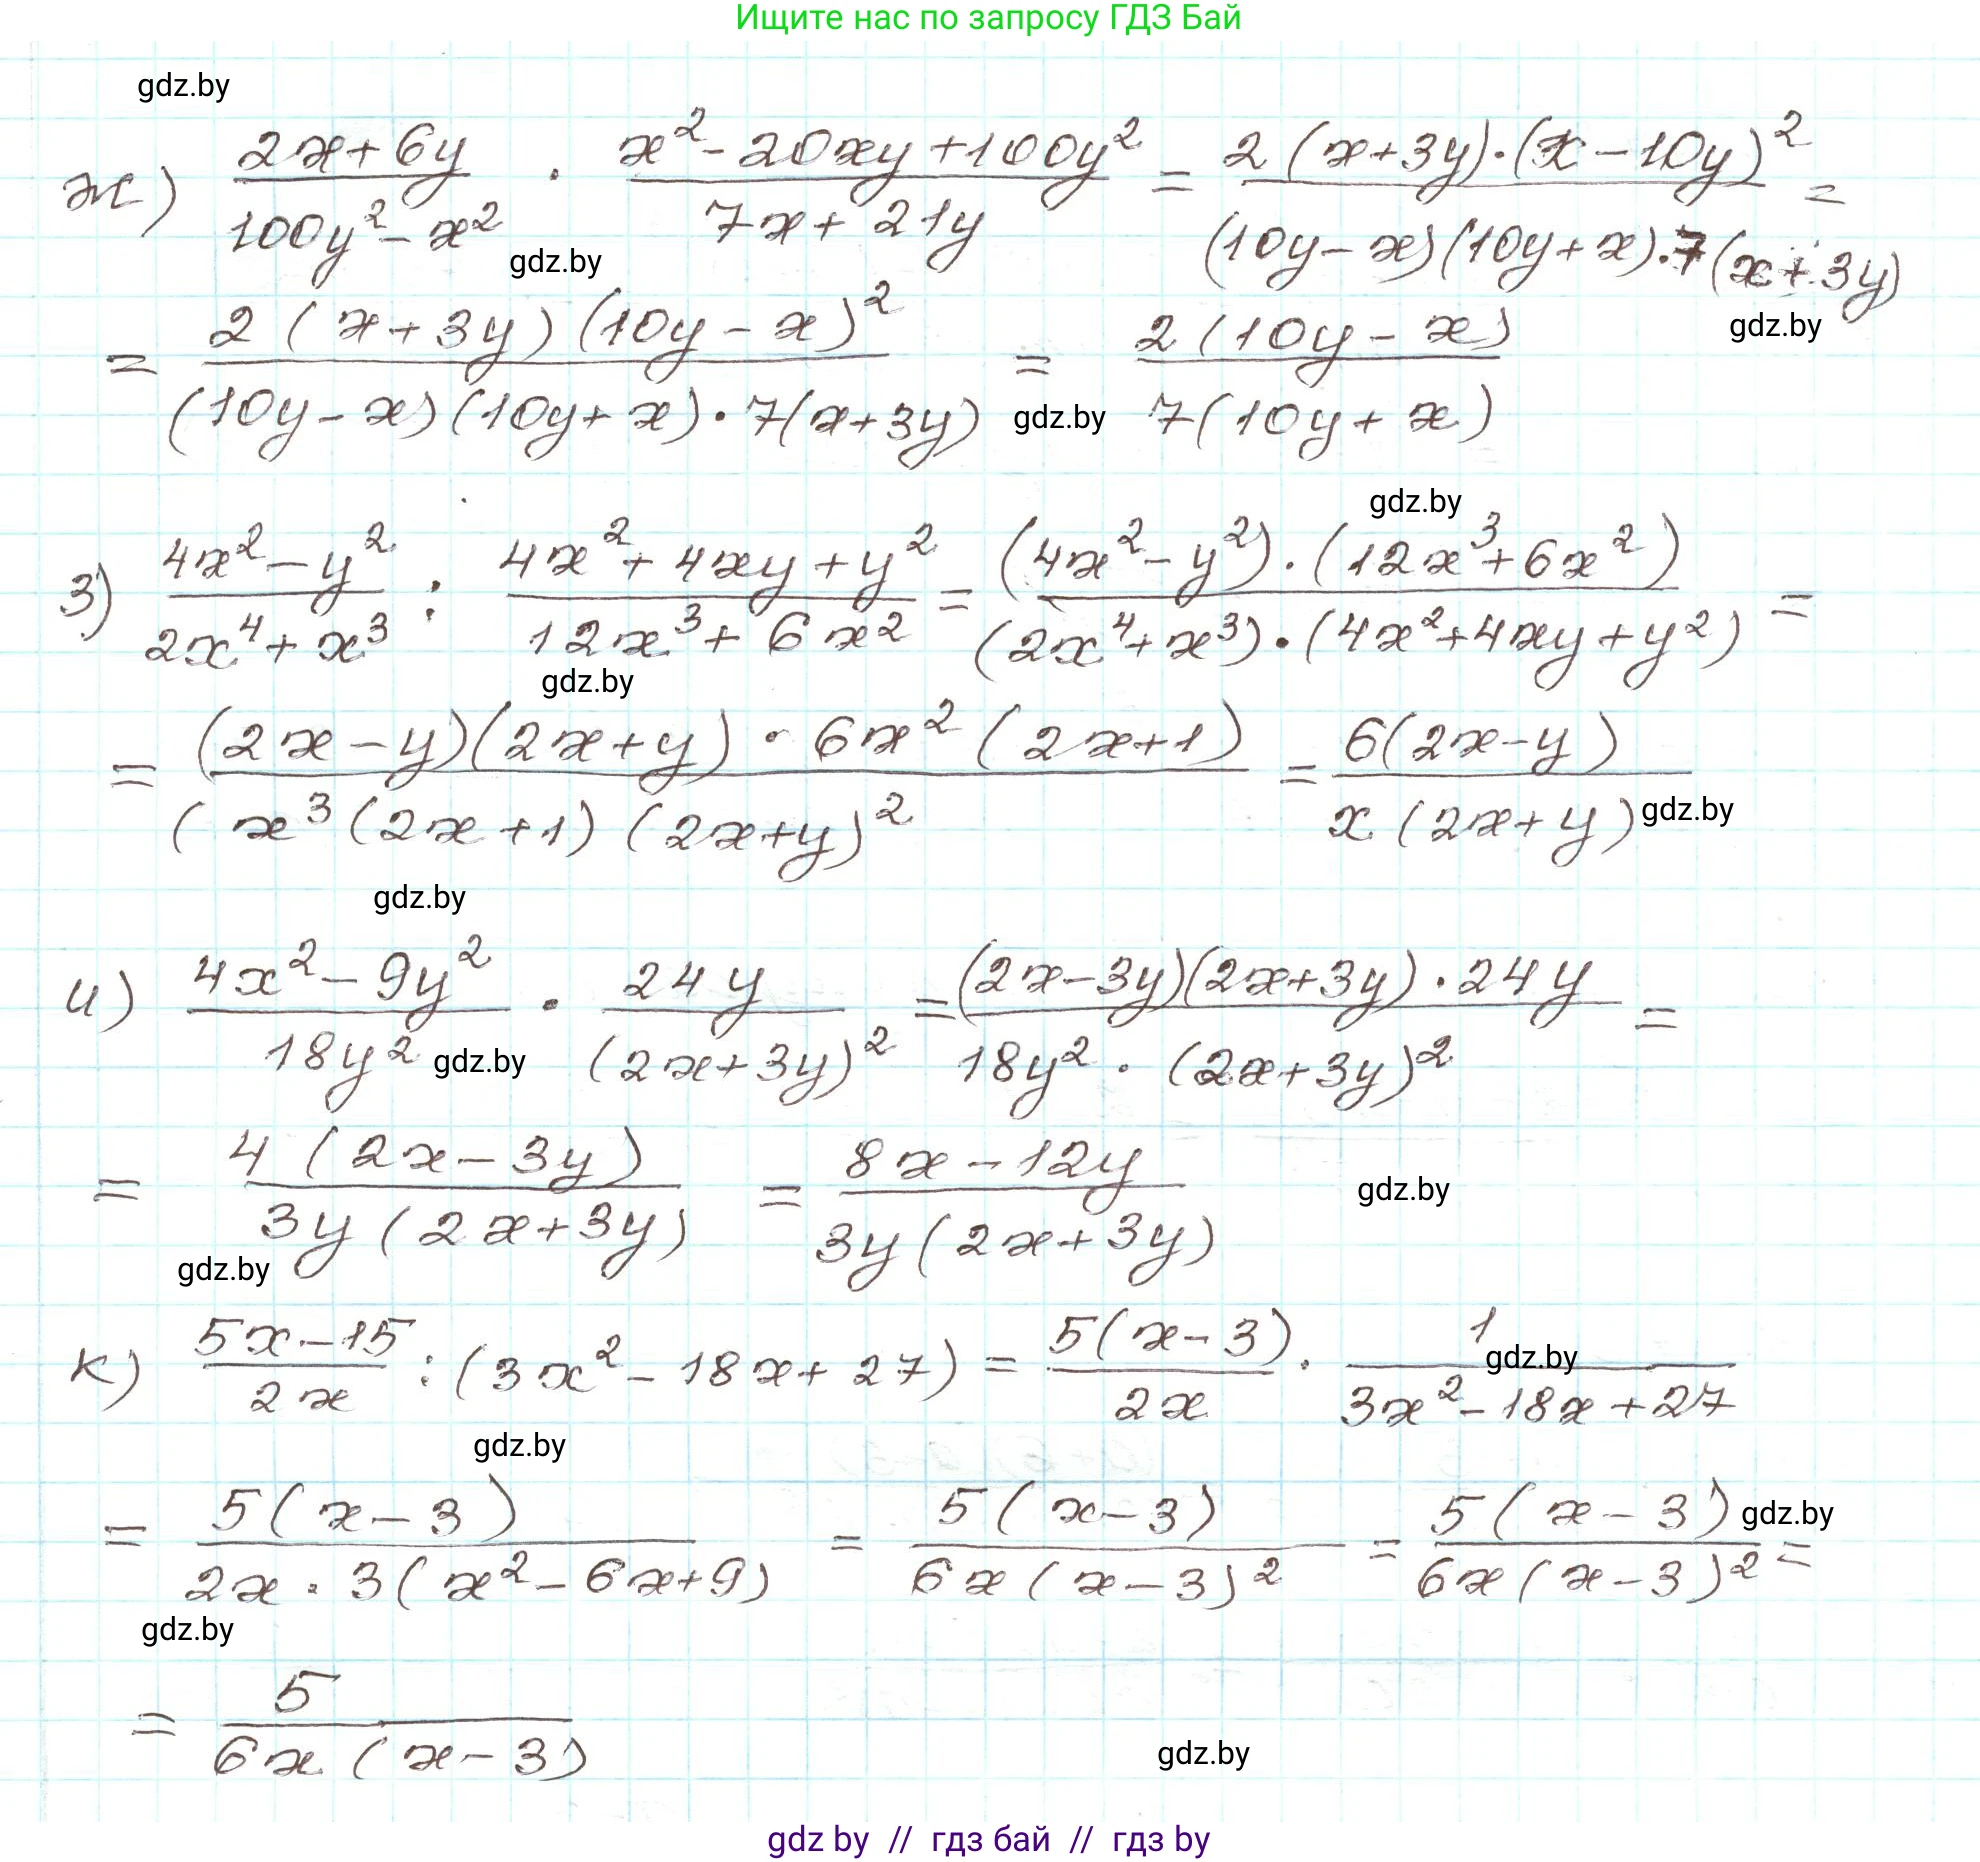 Ищите нас по запросу ГДЗ Бай
gdz.by
ж) (2x+6y)/(100y²-x²) · (x²-20xy+100y²)/(7x+21y) = (2(x+3y)·(x-10y)²)/((10y-x)(10y+x)·7(x+3y)) =
gdz.by
gdz.by
= (2(x+3y)(10y-x)²)/((10y-x)(10y+x)·7(x+3y)) = (2(10y-x))/(7(10y+x))
gdz.by
gdz.by
з) (4x²-y²)/(2x⁴+x³) : (4x²+4xy+y²)/(12x³+6x²) = ((4x²-y²)·(12x³+6x²))/((2x⁴+x³)·(4x²+4xy+y²)) =
gdz.by
= ((2x-y)(2x+y)·6x²(2x+1))/((x³(2x+1)(2x+y)²) = (6(2x-y))/(x(2x+y))
gdz.by
gdz.by
и) (4x²-9y²)/(18y²) · (24y)/((2x+3y)²) = ((2x-3y)(2x+3y)·24y)/(18y²·(2x+3y)²) =
gdz.by
= (4(2x-3y))/(3y(2x+3y)) = (8x-12y)/(3y(2x+3y))
gdz.by
gdz.by
к) (5x-15)/(2x) : (3x²-18x+27) = (5(x-3))/(2x) · 1/(3x²-18x+27)
gdz.by
gdz.by
= (5(x-3))/(2x·3(x²-6x+9)) = (5(x-3))/(6x(x-3)²) = (5(x-3))/(6x(x-3)²) =
gdz.by
gdz.by
= 5/(6x(x-3))
gdz.by
gdz by // гдз бай // гдз by